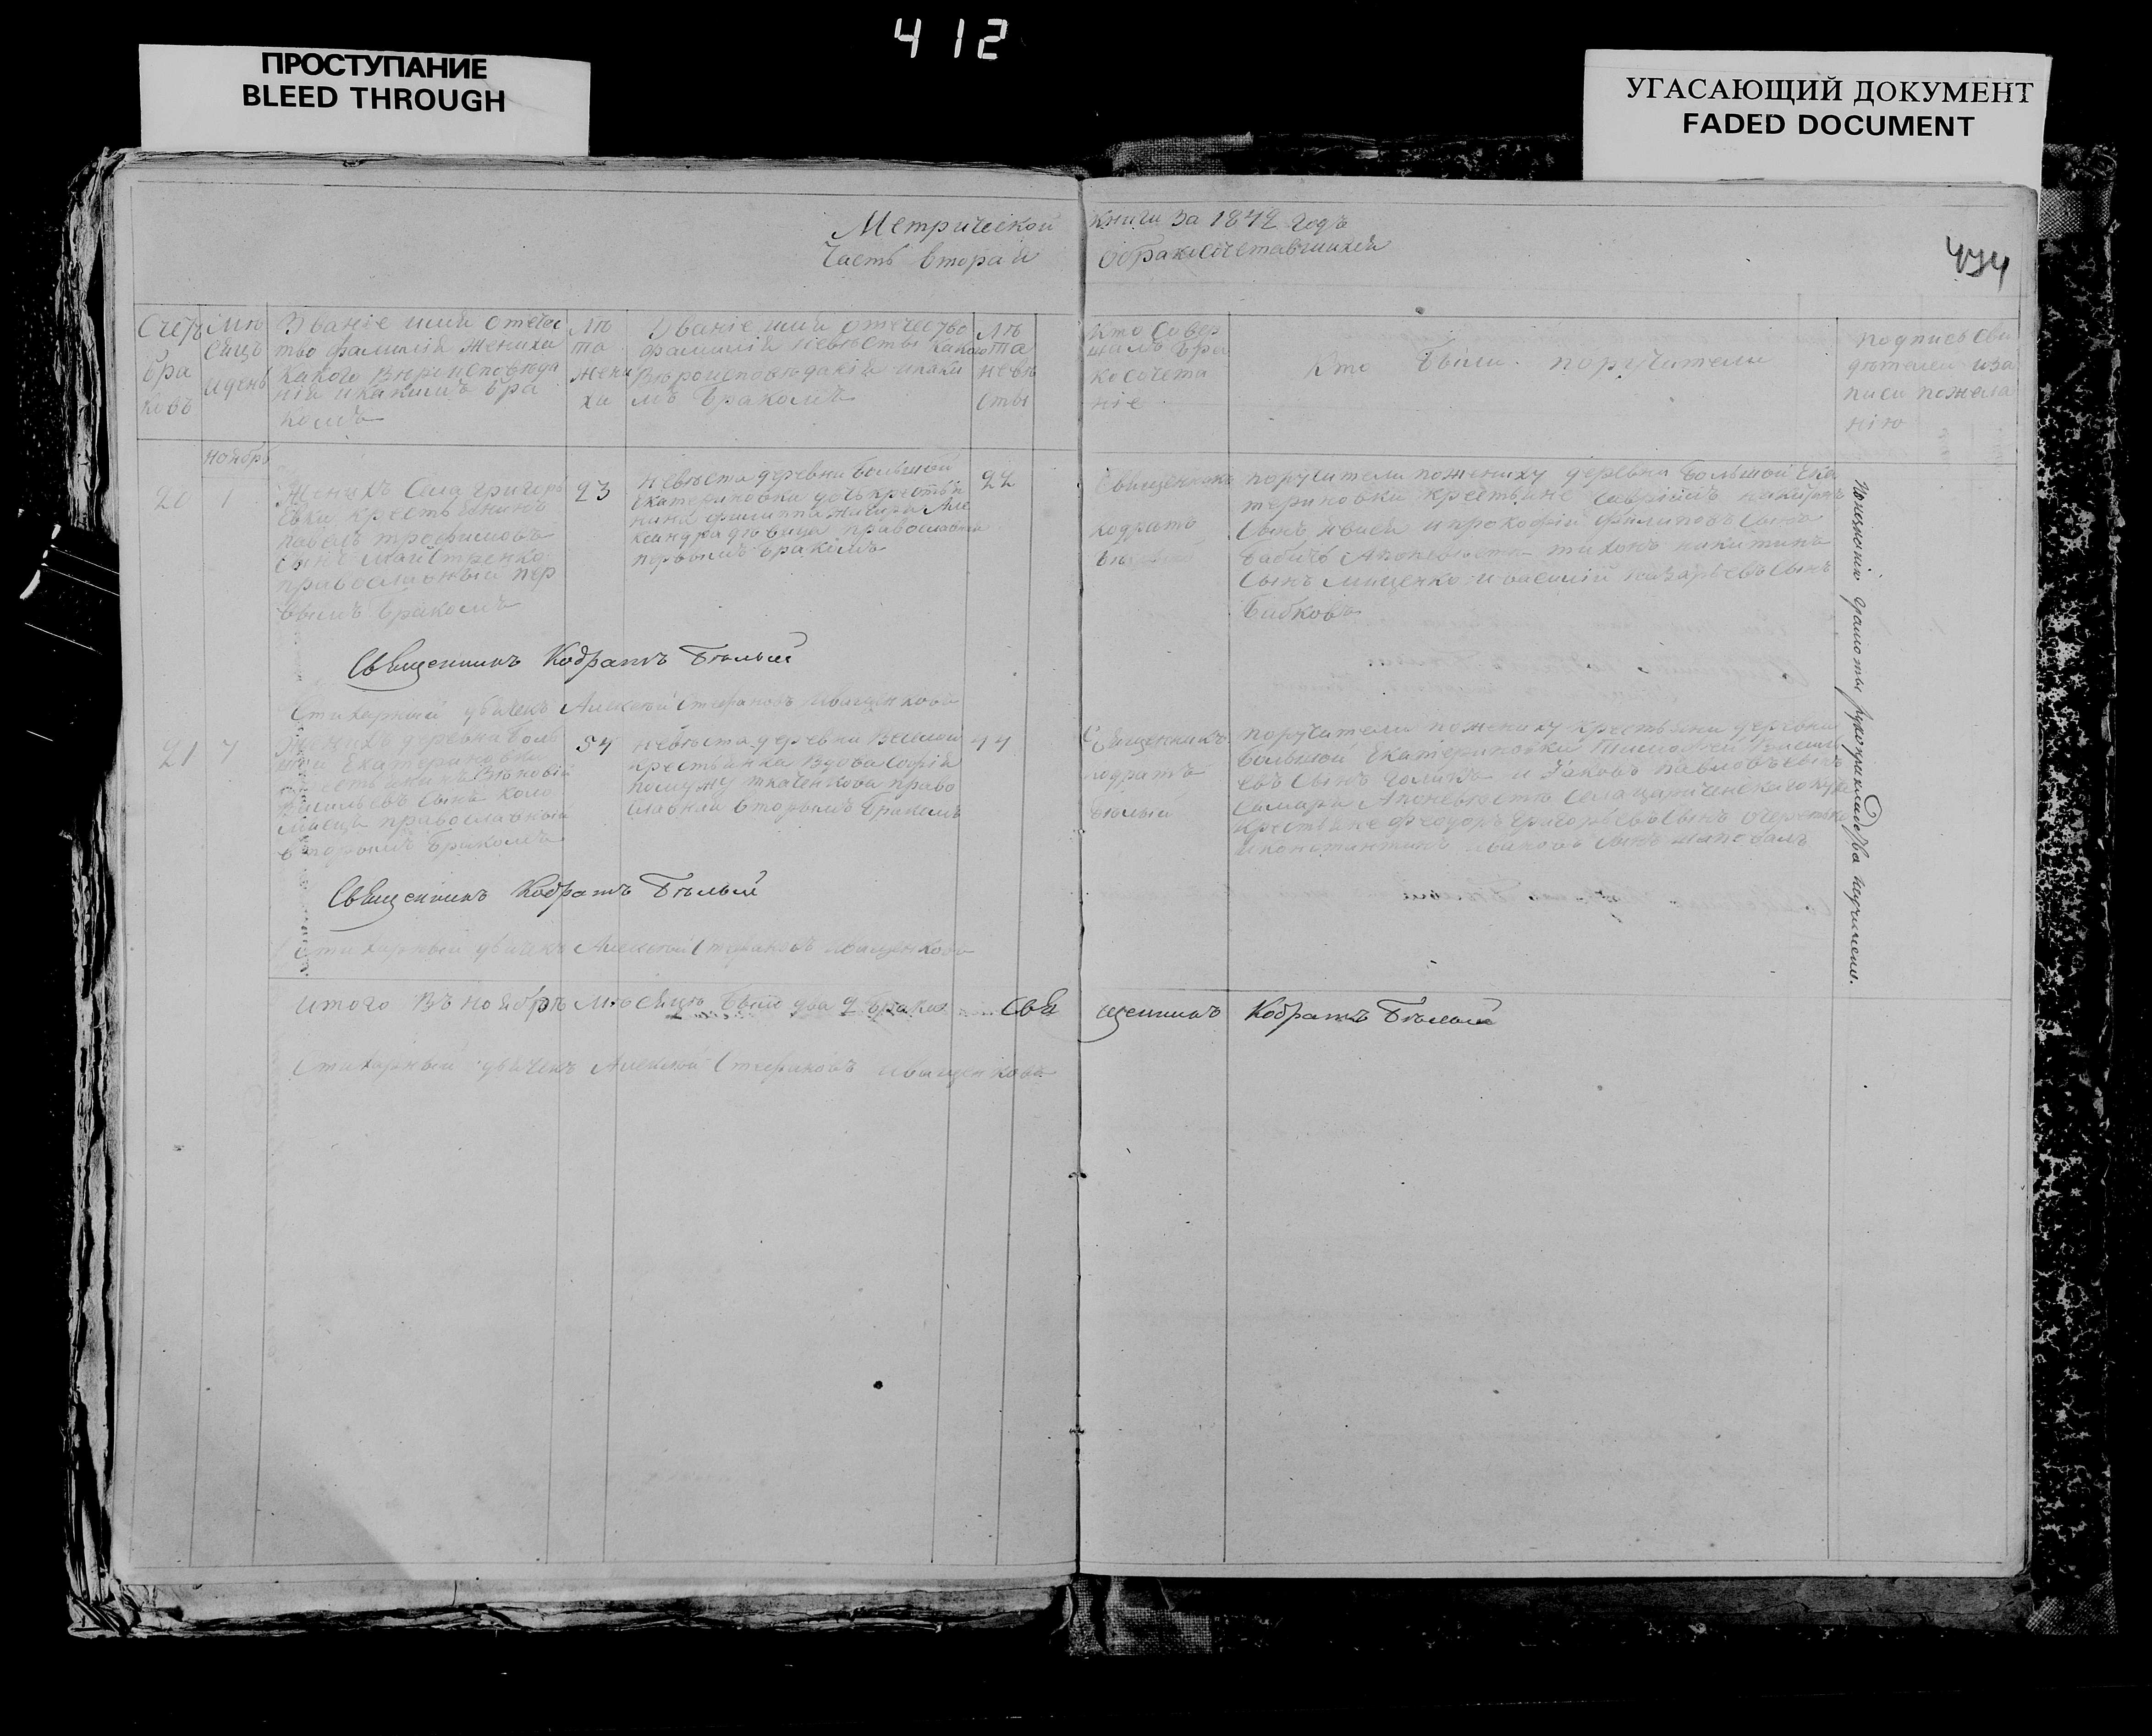 412
ПРОСТУПАНИЕ
BLEED THROUGH
УГАСАЮЩИЙ ДОКУМЕНТ
FADED DOCUMENT
Метрической книги за 1872 годъ
Часть вторая о бракосочетавшихся
Счетъ браковъ
Мѣсяцъ и день
Званіе имя отечес
тво фамилія жениха
какого вѣроисповѣда
нія и какимъ бра
комъ
Лѣ
та
жени
ха
Званіе имя отечество
фамилія невѣсты какого
вѣроисповѣданія и каки
мъ бракомъ
Лѣ
та
невѣ
сты
Кто совер
шалъ бра
косочета
ніе
Кто были поручители
Подпись сви
дѣтелей и за
писи по жела
нію
ноябрь
20
1
Женихъ села Григорь
евки крестьянинъ
Павелъ Трофимовъ
сынъ Майстренко
православный пер
вымъ бракомъ
23
Невѣста деревни Большой
Екатериновки дочь крестья
нина Филиппа
православная
первымъ бракомъ
22
Священникъ
Кодратъ
Бѣлый
поручители по жениху деревни Большой Ека
териновки крестьяне
сынъ и Прокофій Филиповъ сынъ
Бабичъ а по невѣсте Тихонъ Никитинъ
сынъ Мищенко и Василій Назарьевъ сынъ
Бабковъ
Священникъ Кодратъ Бѣлый
Стихарный дьячекъ Алексѣй Стефановъ Иващенковъ
21
7
Женихъ деревни Боль
шой Екатериновки
крестьянинъ
Васильевъ сынъ Коло
миецъ православный
вторымъ бракомъ
54
Невѣста деревни Веселой
крестьянка вдова Софія
по мужу Ткаченкова право
славная вторымъ бракомъ
44
Священникъ
Кодратъ
Бѣлый
поручители по жениху крестьяни деревни
Большой Екатериновки Тимофей
евъ сынъ Голикъ и Яковъ Павловъ сынъ
Самара а по невѣсте села
крестьяне Феодоръ Григорьевъ сынъ
и Константинъ Ивановъ сынъ Шаповалъ
Священникъ Кодратъ Бѣлый
Стихарный дьячекъ Алексѣй Стефановъ Иващенковъ
итого въ ноябрѣ мѣсяцѣ было два 2 брака Священникъ Кодратъ Бѣлый
Стихарный дьячекъ Алексѣй Стефановъ Иващенковъ